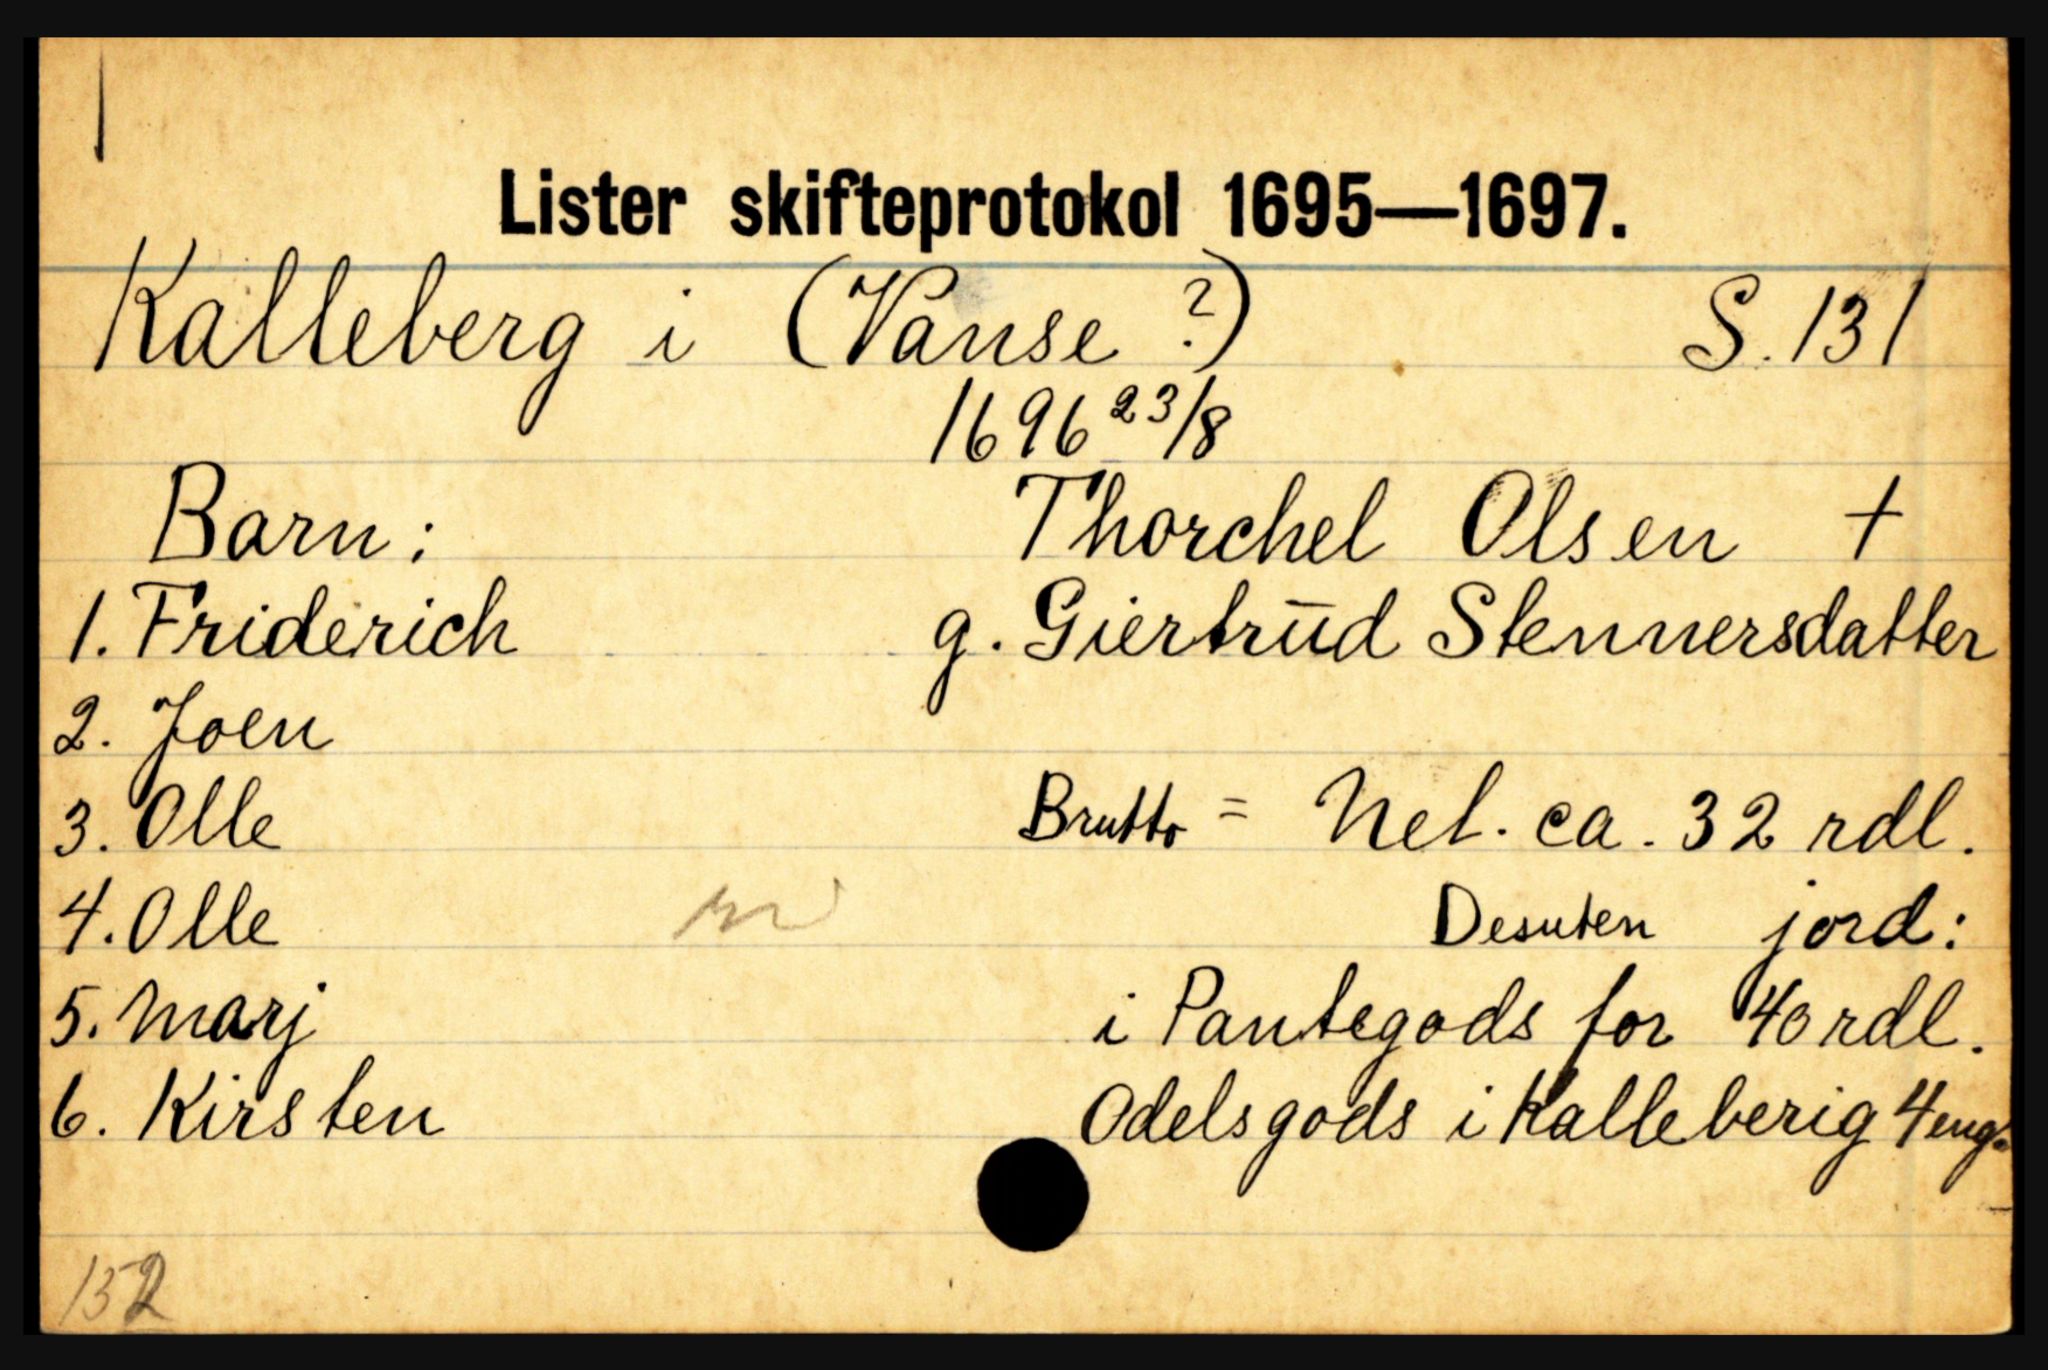 Lister skifteprotokol 1695—1697.
Kalleberg i (Vanse ?) S. 131
1696 23/8
Barn: Thorchel Olsen +
1. Friderich g. Giertrūd Stennersdatter
2. Joen
3. Olle Brutto = Net. ca. 32 rdl.
4. Olle Desuten jord:
5. Marj i Pantegods for 40 rdl.
6. Kirsten Odelsgods i Kalleberig 4 eng.
152